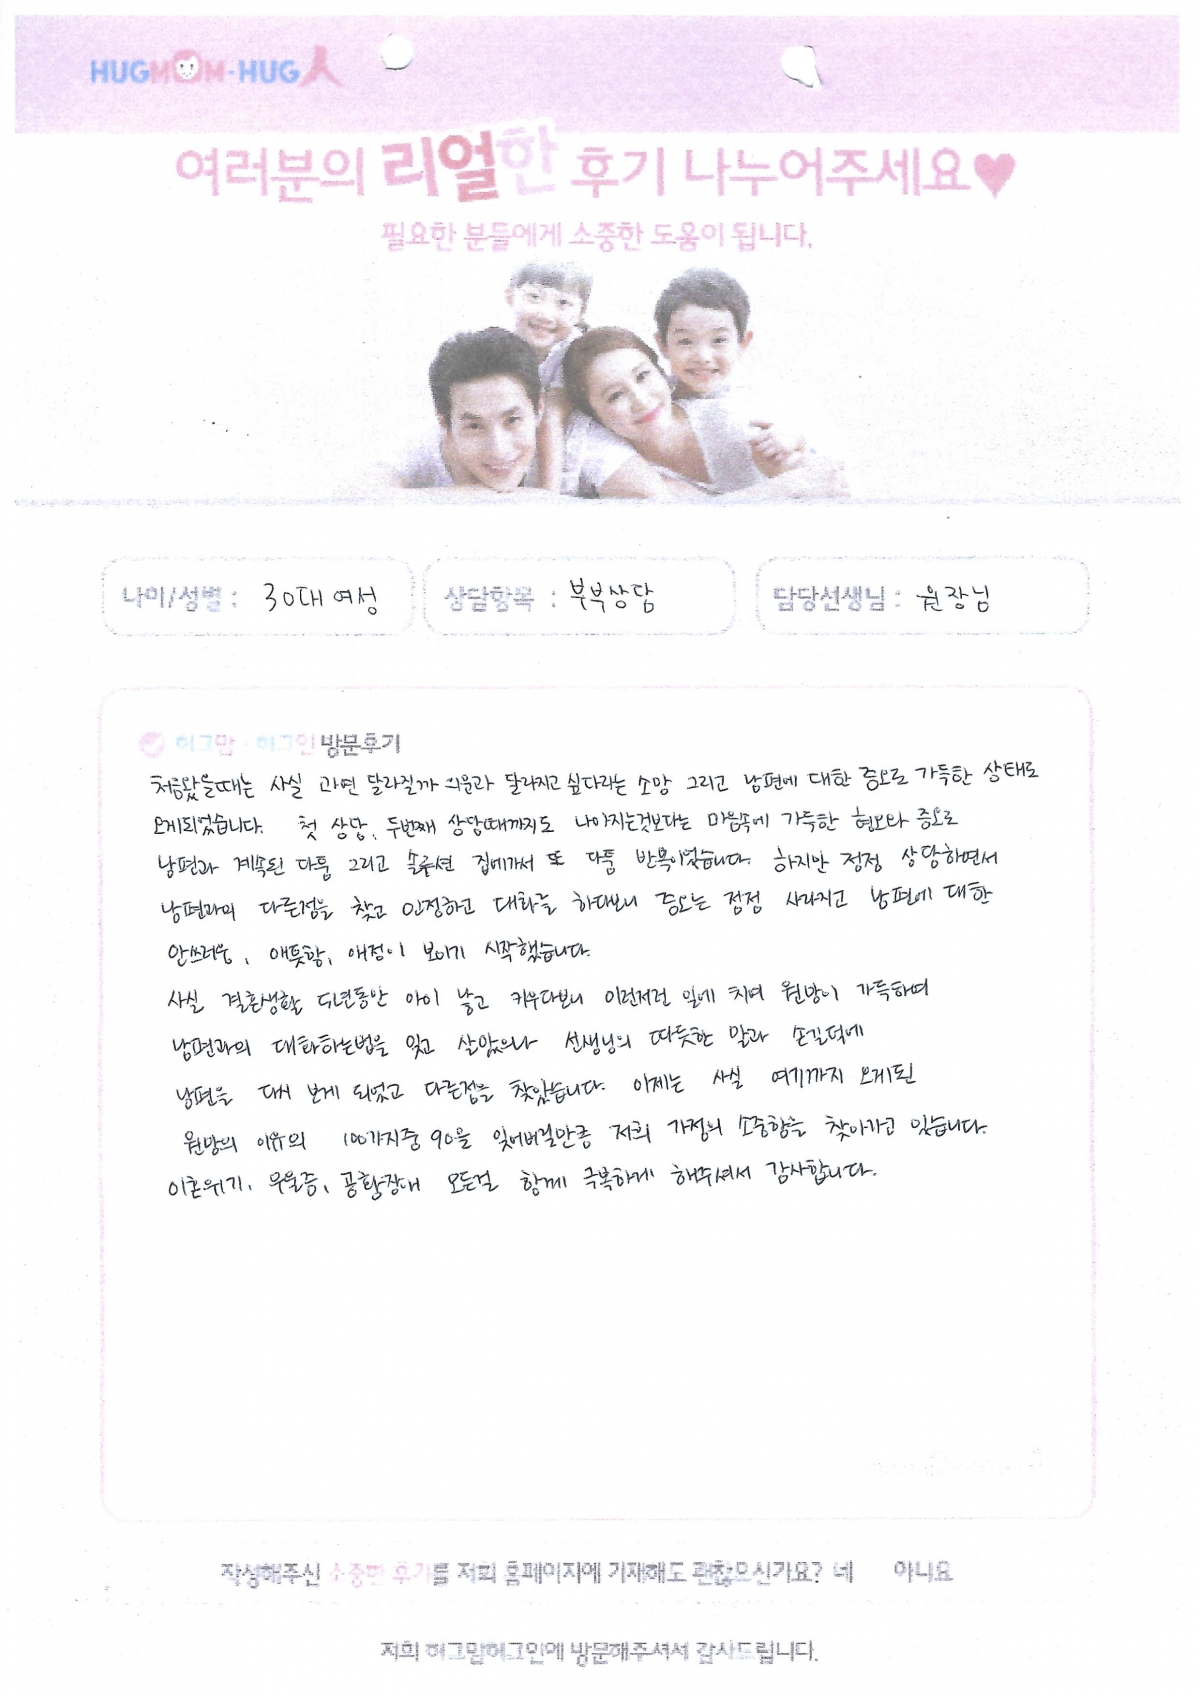 HUGMOM·HUG人
여러분의 리얼한 후기 나누어주세요♥
필요한 분들에게 소중한 도움이 됩니다.
나이/성별 : 30대 여성
상담항목 : 부부상담
담당선생님 : 원장님
허그맘·허그인 방문후기
처음왔을때는 사실 과연 달라질까 의문과 달라지고 싶다라는 소망 그리고 남편에 대한 증오로 가득한 상태로
오게되었습니다. 첫 상담, 두번째 상담때까지도 나아지는것보다는 마음속에 가득한 혐오와 증오로
남편과 계속된 다툼 그리고 솔루션 집에가서 또 다툼 반복이었습니다. 하지만 점점 상담하면서
남편과의 다른점을 찾고 인정하고 대화를 하다보니 증오는 점점 사라지고 남편에 대한
안쓰러움, 애틋함, 애정이 보이기 시작했습니다.
사실 결혼생활 5년동안 아이 낳고 키우다보니 이런저런 일에 치여 원망이 가득하며
남편과의 대화하는법을 잊고 살았으나 선생님의 따듯한 말과 손길덕에
남편을 다시 보게 되었고 다른점을 찾았습니다. 이제는 사실 여기까지 오게된
원망의 이유의 100가지중 90을 잊어버릴만큼 저희 가정의 소중함을 찾아가고 있습니다.
이혼위기, 우울증, 공황장애 모든걸 함께 극복하게 해주셔서 감사합니다.
작성해주신 소중한 후기를 저희 홈페이지에 기재해도 괜찮으신가요? 네 아니요
저희 허그맘허그인에 방문해주셔서 감사드립니다.